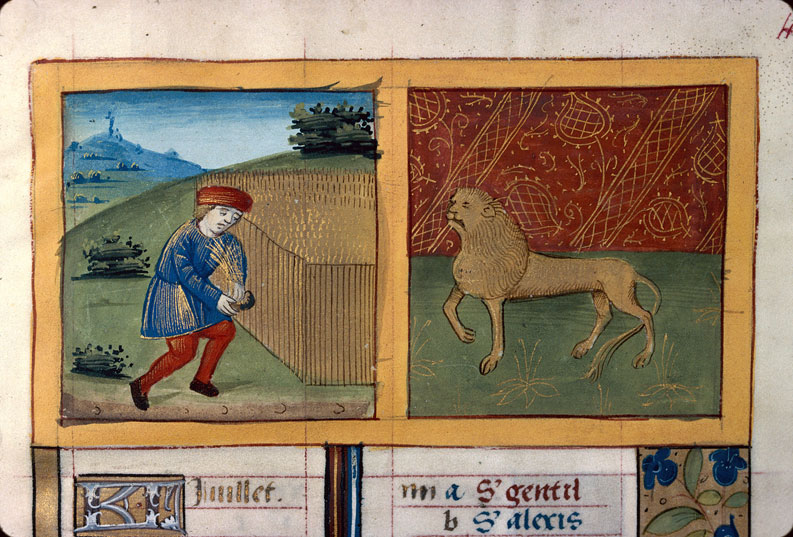 Kl Juillet.
iiii a S' gentil
b S' alexis